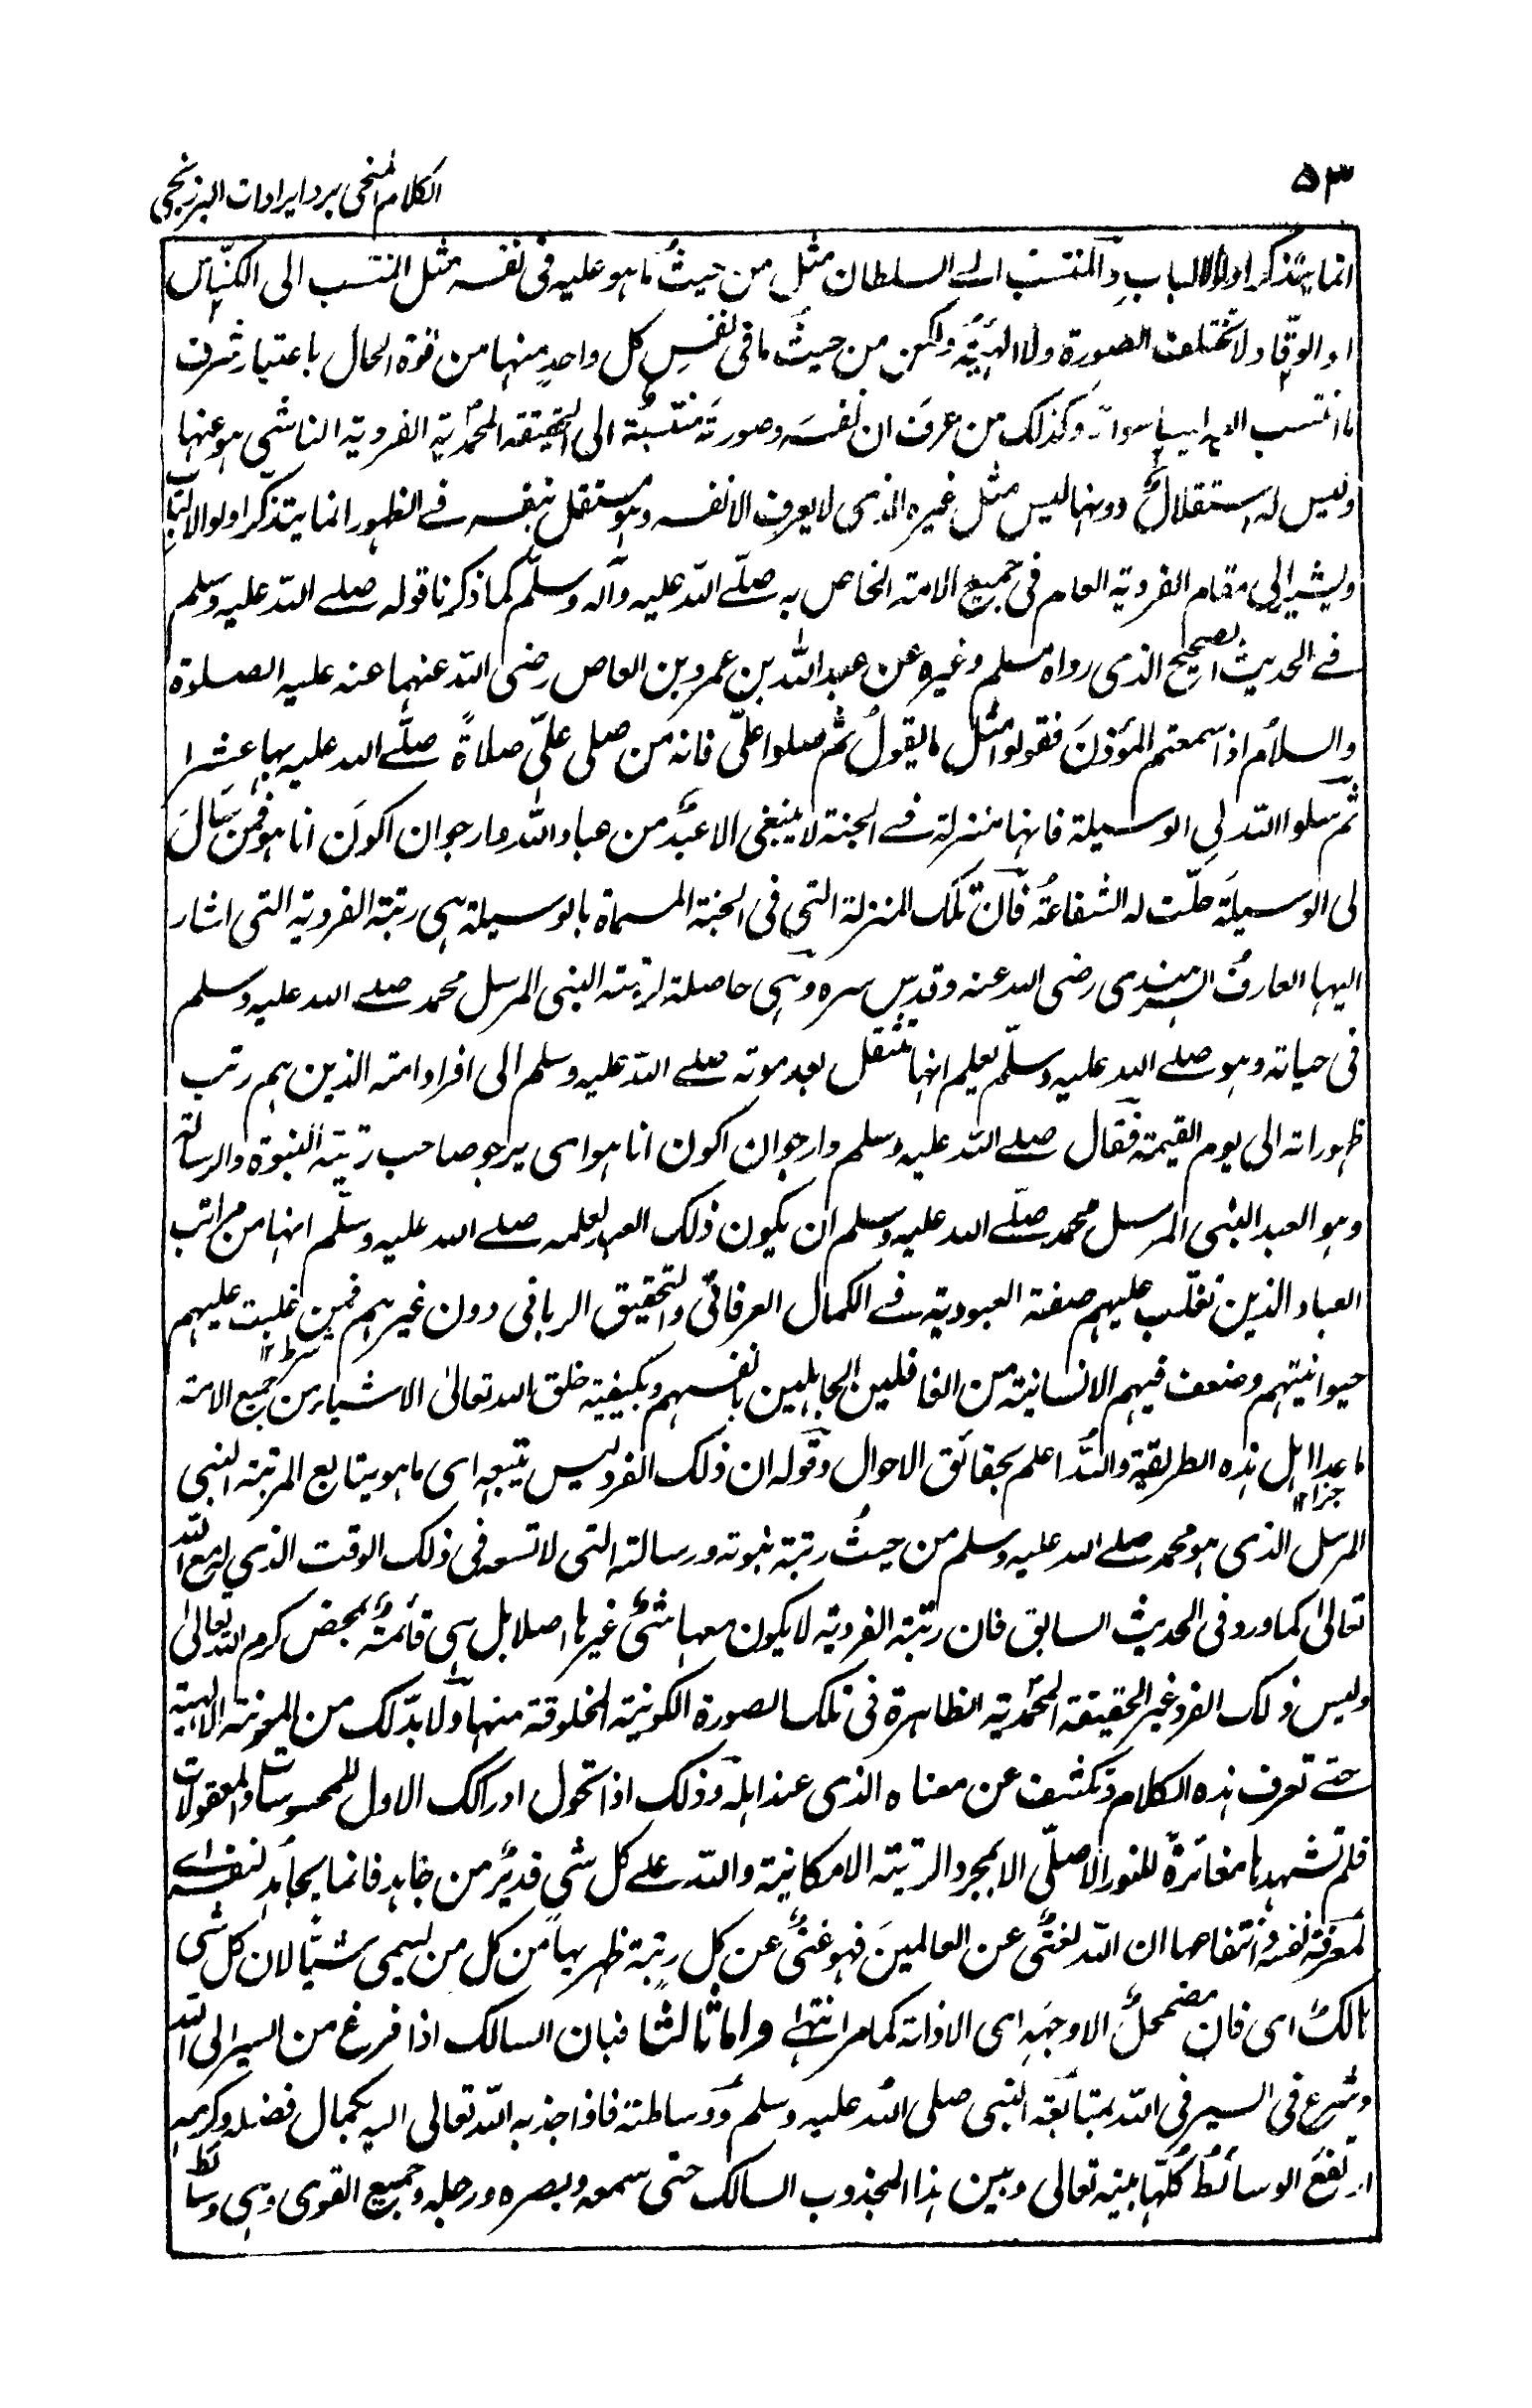 ٥٣
الكلام المنجى برد ايرادات البرزنجى
انما يتذكر اولوا الالباب والمنتسب الى السلطان مثل من حيث ما هو عليه فى نفسه مثل المنتسب الى الكنّاس
او الوقّاد لا تختلف الصورة ولا الهيئة ولكن من حيث ما فى نفس كل واحدٍ منهما من قوة الحال باعتبار شرف
ما انتسب اليه ليسا سواءً وكذلك من عرفَ ان نفسَه وصورتَه منتسبةٌ الى الحقيقة المحمّدية الفردية الناشى هو عنها
وليس له استقلالٌ دونها ليس مثل غيره الذى لا يعرف الا نفسه وهو مستقل بنفسه فى الظهور انما يتذكر اولو الالباب
ويشير الى مقام الفردية العام فى جميع الامة الخاص به صلّى الله عليه وآله وسلّم كما ذكرنا قوله صلى الله عليه وسلم
فى الحديث الصحيح الذى رواه مسلم وغيره عن عبد الله بن عمرو بن العاص رضى الله عنهما عنه عليه الصلوة
والسلام اذا سمعتم المؤذنَ فقولوا مثل ما يقولُ ثم صلوا علىّ فانه من صلى علىّ صلاةً صلّى الله عليه بها عشرا
ثم سلوا الله لى الوسيلة فانها منزلة فى الجنة لا ينبغى الا عبدٌ من عباد الله وارجو ان اكونَ انا هو فمن سَأل
لى الوسيلَة حلّت له الشفاعةُ فان تلك المنزلة التى فى الجنة المسماة بالوسيلة هى رتبة الفردية التى اشار
اليها العارف السرهندى رضى الله عنه وقدس سره وهى حاصلة لرتبته النبى المرسل محمد صلى الله عليه وسلم
فى حياته وهو صلى الله عليه وسلّم يعلم انها تنتقل بعد موته صلى الله عليه وسلم الى افراد امته الذين هم رتب
ظهوراته الى يوم القيمة فقال صلى الله عليه وسلم وارجو ان اكون انا هو اى يرجو صاحب رتبة النبوة والرسالة
وهو العبد النبى المرسل محمد صلّى الله عليه وسلم ان يكون ذلك العبد لعلمه صلى الله عليه وسلّم انها من مراتب
العباد الذين تغلّب عليهم صفة العبودية فى الكمال العرفانى والتحقيق الربانى دون غيرهم فمن غلبت عليهم
شرط ١٢
حيوانيتهم وضعف فيهم الانسانية من الغافلين الجاهلين بانفسهم وبكيفية خلق الله تعالى الاشياء من جميع الامة
ما عدا اهل هذه الطريقة والله اعلم بحقائق الاحوال وقوله ان ذلك الفرد ليس يتبعه اى ما هو بتابع المرتبة النبى
جزا ١٢
المرسل الذى هو محمد صلى الله عليه وسلم من حيثُ رتبة نبوته ورسالته التى لا تسعه فى ذلك الوقت الذي له مع الله
تعالى كما ورد فى الحديث السابق فان رتبة الفردية لا يكون معها شئٌ غيرها اصلا بل هى قائمةٌ بمحض كرم الله تعالى
وليس ذلك الفرد غير الحقيقة المحمّدية الظاهرة فى تلك الصورة الكونية المخلوقة منها ولا بدّ لك من المعونة الالهية
حتى تعرف هذه الكلام وتكشف عن معناه الذى عند اهله وذلك اذا تحول ادراكك الاول للمحسوسات والمعقولات
فلم تشهدها مغائرةً للنور الاصلّى الا بمجرد الرتبة الامكانية والله على كل شى قديرٌ من جاهد فانما يجاهد لنفسه اى
لمعرفة نفسه وانتفاعها ان الله لغنىٌّ عن العالمينَ فهو غنىٌّ عن كل رتبة ظهر بها من كل من يسمى شيئًا لان كل شى
هالكٌ اى فان مضمحلٌ الا وجهَه اى الا ذاته كما مر انتهى واما ثالثا فبان السالك اذا فرغ من السير الى الله
وشرع فى السير فى الله بمتابعة النبى صلى الله عليه وسلم ووساطته فاذا جذبه الله تعالى اليه بكمال فضله وكرمه
ارتفعَ الوسائطُ كُلّها بينه تعالى وبين هذا المجذوب السالك حتى سمعه وبصره ورجله وجميع القوى وهى وسائط